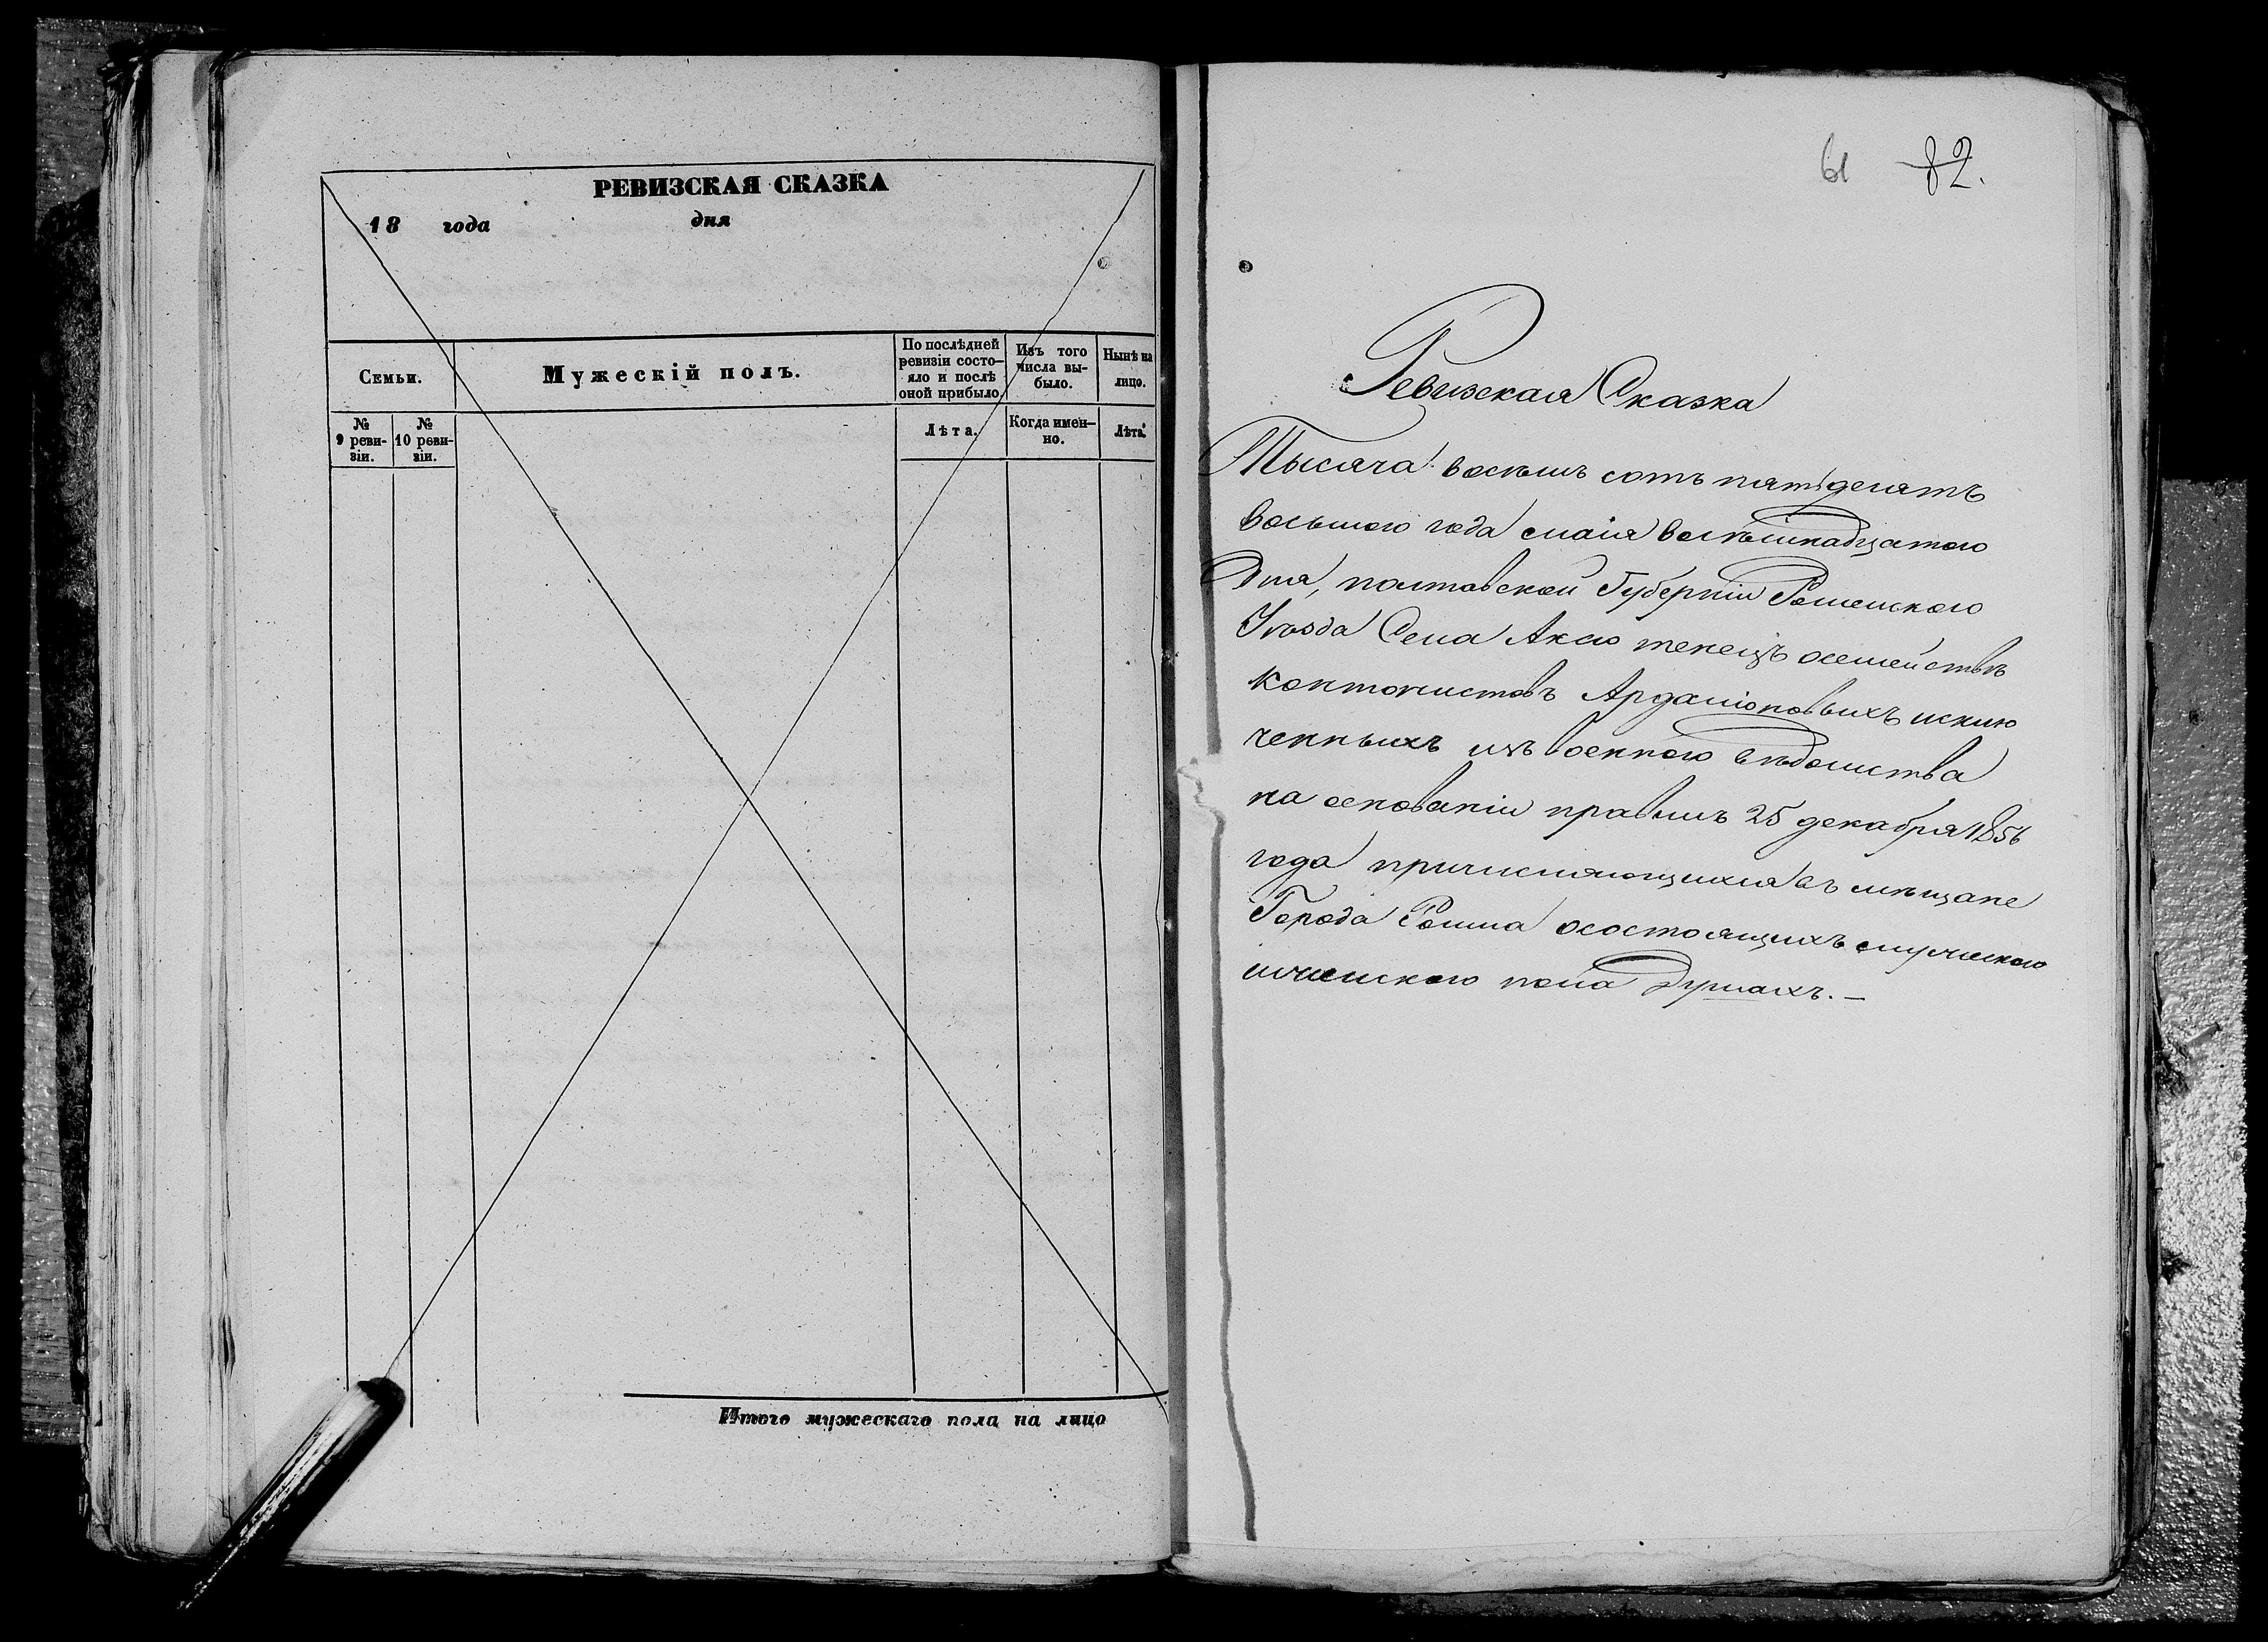 РЕВИЗСКАЯ СКАЗКА
18 года дня
Семьи.
Мужескій полъ.
По послѣдней ревизіи состо-
яло и послѣ оной прибыло.
Изъ того числа вы-
было.
Нынѣ на лицо.
№ 9 реви-
зіи.
№ 10 реви-
зіи.
Лѣта.
Когда имен-
но.
Лѣта.
Итого мужескаго пола на лицо
61 82.
Ревизская Сказка
Тысяча восѣмь сотъ пятдесятъ
восьмого года маія восѣмнадцатого
Дня, полтавской Губерніи Роменского
Уѣзда Села Аксютенецъ осемействѣ
контонистовъ Ардаліоновыхъ исклю
ченныхъ изъ военного вѣдомства
на основаніи правилъ 25 декабря 1856
года причисляющихся въ мѣщане
Города Ромна осостоящихъ мужеского
иженского пола Душахъ. —